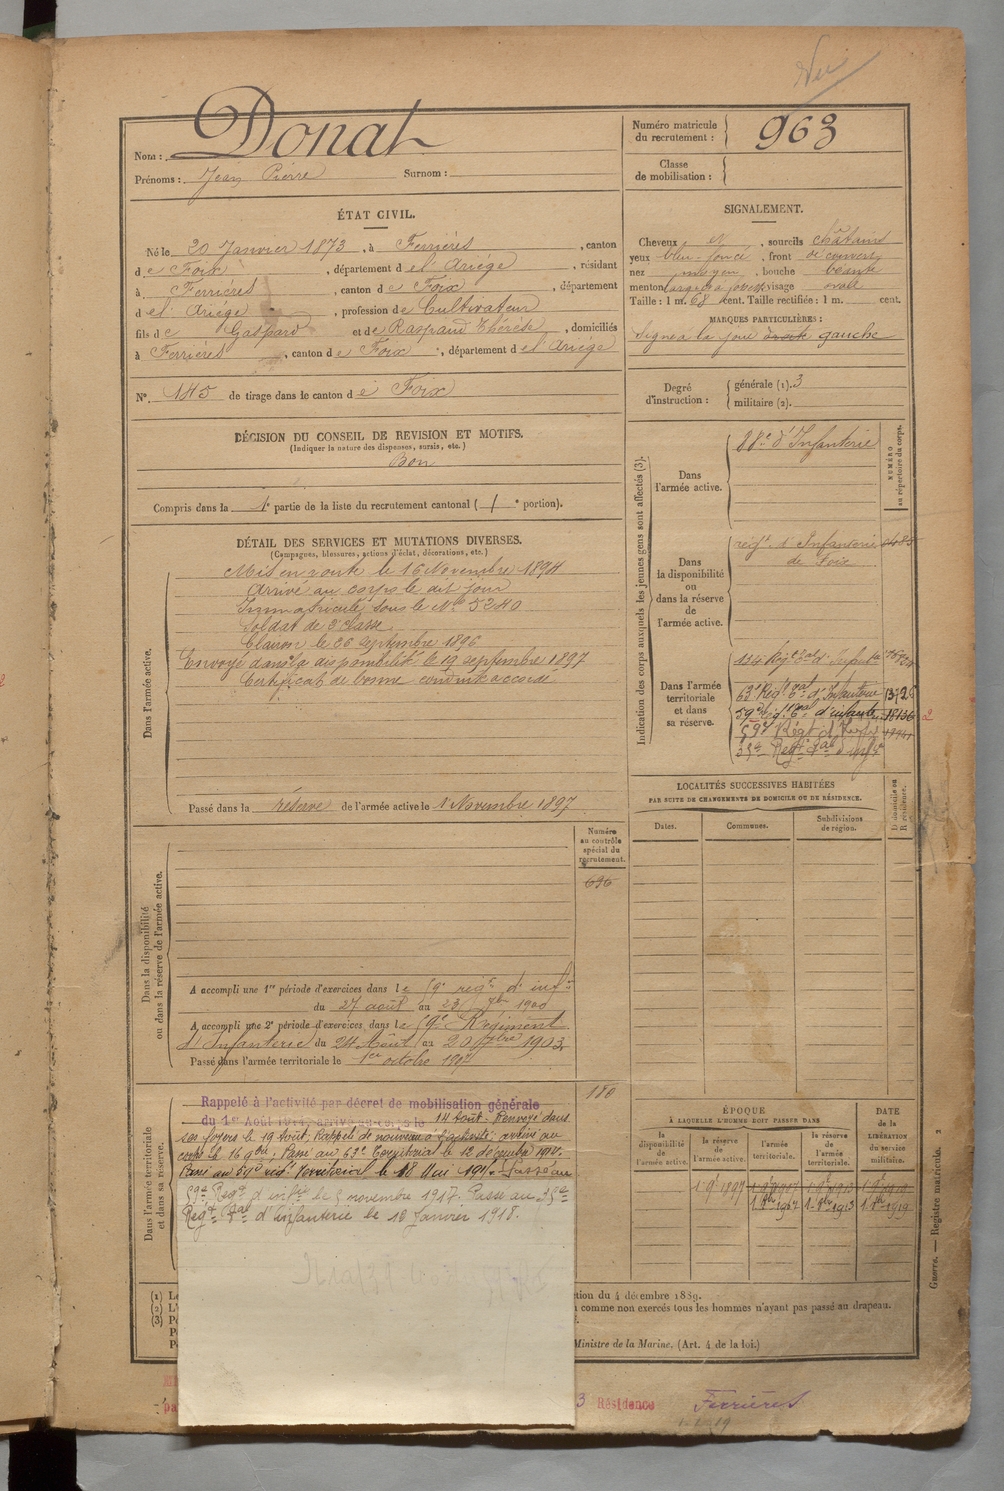 Vu
Nom : Donat
Prénoms : Jean Pierre Surnom :
Numéro matricule du recrutement : 963
Classe de mobilisation :
ÉTAT CIVIL.
Né le 20 Janvier 1873, à Ferrières, canton
de Foix, département de l'Ariège, résidant
à Ferrières, canton de Foix, département
de l'Ariège, profession de Cultivateur
fils de Gaspard et de Raspaud Thérèse, domiciliés
à Ferrières, canton de Foix, département de l'Ariège
N° 145 de tirage dans le canton de Foix
SIGNALEMENT.
Cheveux et, sourcils châtains
yeux bleu-foncé, front découvert
nez moyen, bouche béante
menton large à fossette visage oval
Taille : 1 m. 68 cent. Taille rectifiée : 1 m. cent.
MARQUES PARTICULIÈRES :
Signe à la joue droite gauche
Degré d'instruction : générale (1). 3
militaire (2).
DÉCISION DU CONSEIL DE REVISION ET MOTIFS.
(Indiquer la nature des dispenses, sursis, etc.)
Bon
Compris dans la 1e partie de la liste du recrutement cantonal ( / e portion).
DÉTAIL DES SERVICES ET MUTATIONS DIVERSES.
(Campagnes, blessures, actions d'éclat, décorations, etc.)
Dans l'armée active.
Mis en route le 16 Novembre 1894
Arrivé au corps le dit jour
Immatriculé sous le No 5240
Soldat de 2e classe
Clairon le 26 septembre 1896
Envoyé dans la disponibilité le 19 septembre 1897
Certificat de bonne conduite accordé
Passé dans la réserve de l'armée active le 1 Novembre 1897
Indication des corps auxquels les jeunes gens sont affectés (3).
NUMÉRO au répertoire du corps.
Dans l'armée active.
88e d'Infanterie
Dans la disponibilité ou dans la réserve de l'armée active.
régt d'Infanterie
de Foix
Dans l'armée territoriale et dans sa réserve.
134 Régt tal d'Infrie
63e Régt tal d'Infanterie
59e Régt tal d'infanterie 18136
59e Régt d'Infie
35e Régt tal d'infie
LOCALITÉS SUCCESSIVES HABITÉES
PAR SUITE DE CHANGEMENTS DE DOMICILE OU DE RÉSIDENCE.
Dates. Communes. Subdivisions de région. D domicile ou R résidence.
Dans la disponibilité ou dans la réserve de l'armée active.
Numéro au contrôle spécial du recrutement.
696
A accompli une 1re période d'exercices dans le 59e régt d'infie
du 27 août au 23 7bre 1900
A accompli une 2e période d'exercices dans le 59e Régiment
d'Infanterie du 24 Août au 20 7bre 1903
Passé dans l'armée territoriale le 1er octobre 1907
180
Dans l'armée territoriale et dans sa réserve.
Rappelé à l'activité par décret de mobilisation générale
du 1er Août 1914, arrivé au corps le 14 Août. Renvoyé dans
ses foyers le 19 Août. Rappelé de nouveau à l'activité, arrivé au
corps le 16 9bre. Passé au 63e Territorial le 12 décembre 1914.
Passé au régt Territorial le 18 Mai 1917. Passé au
59e Régt d'infrie le 5 novembre 1917. Passé au 35e
Régt tal d'infanterie le 16 Janvier 1918.
ÉPOQUE
À LAQUELLE L'HOMME DOIT PASSER DANS
DATE de la LIBÉRATION du service militaire.
la disponibilité de l'armée active. la réserve de l'armée active. l'armée territoriale. la réserve de l'armée territoriale.
1 9bre 1897
1 8bre 1907 1 8bre 1913 1 8bre 1919
Guerre. — Registre matricule.
ction du 4 décembre 1889.
comme non exercés tous les hommes n'ayant pas passé au drapeau.
Ministre de la Marine. (Art. 4 de la loi.)
3 Résidence Ferrières